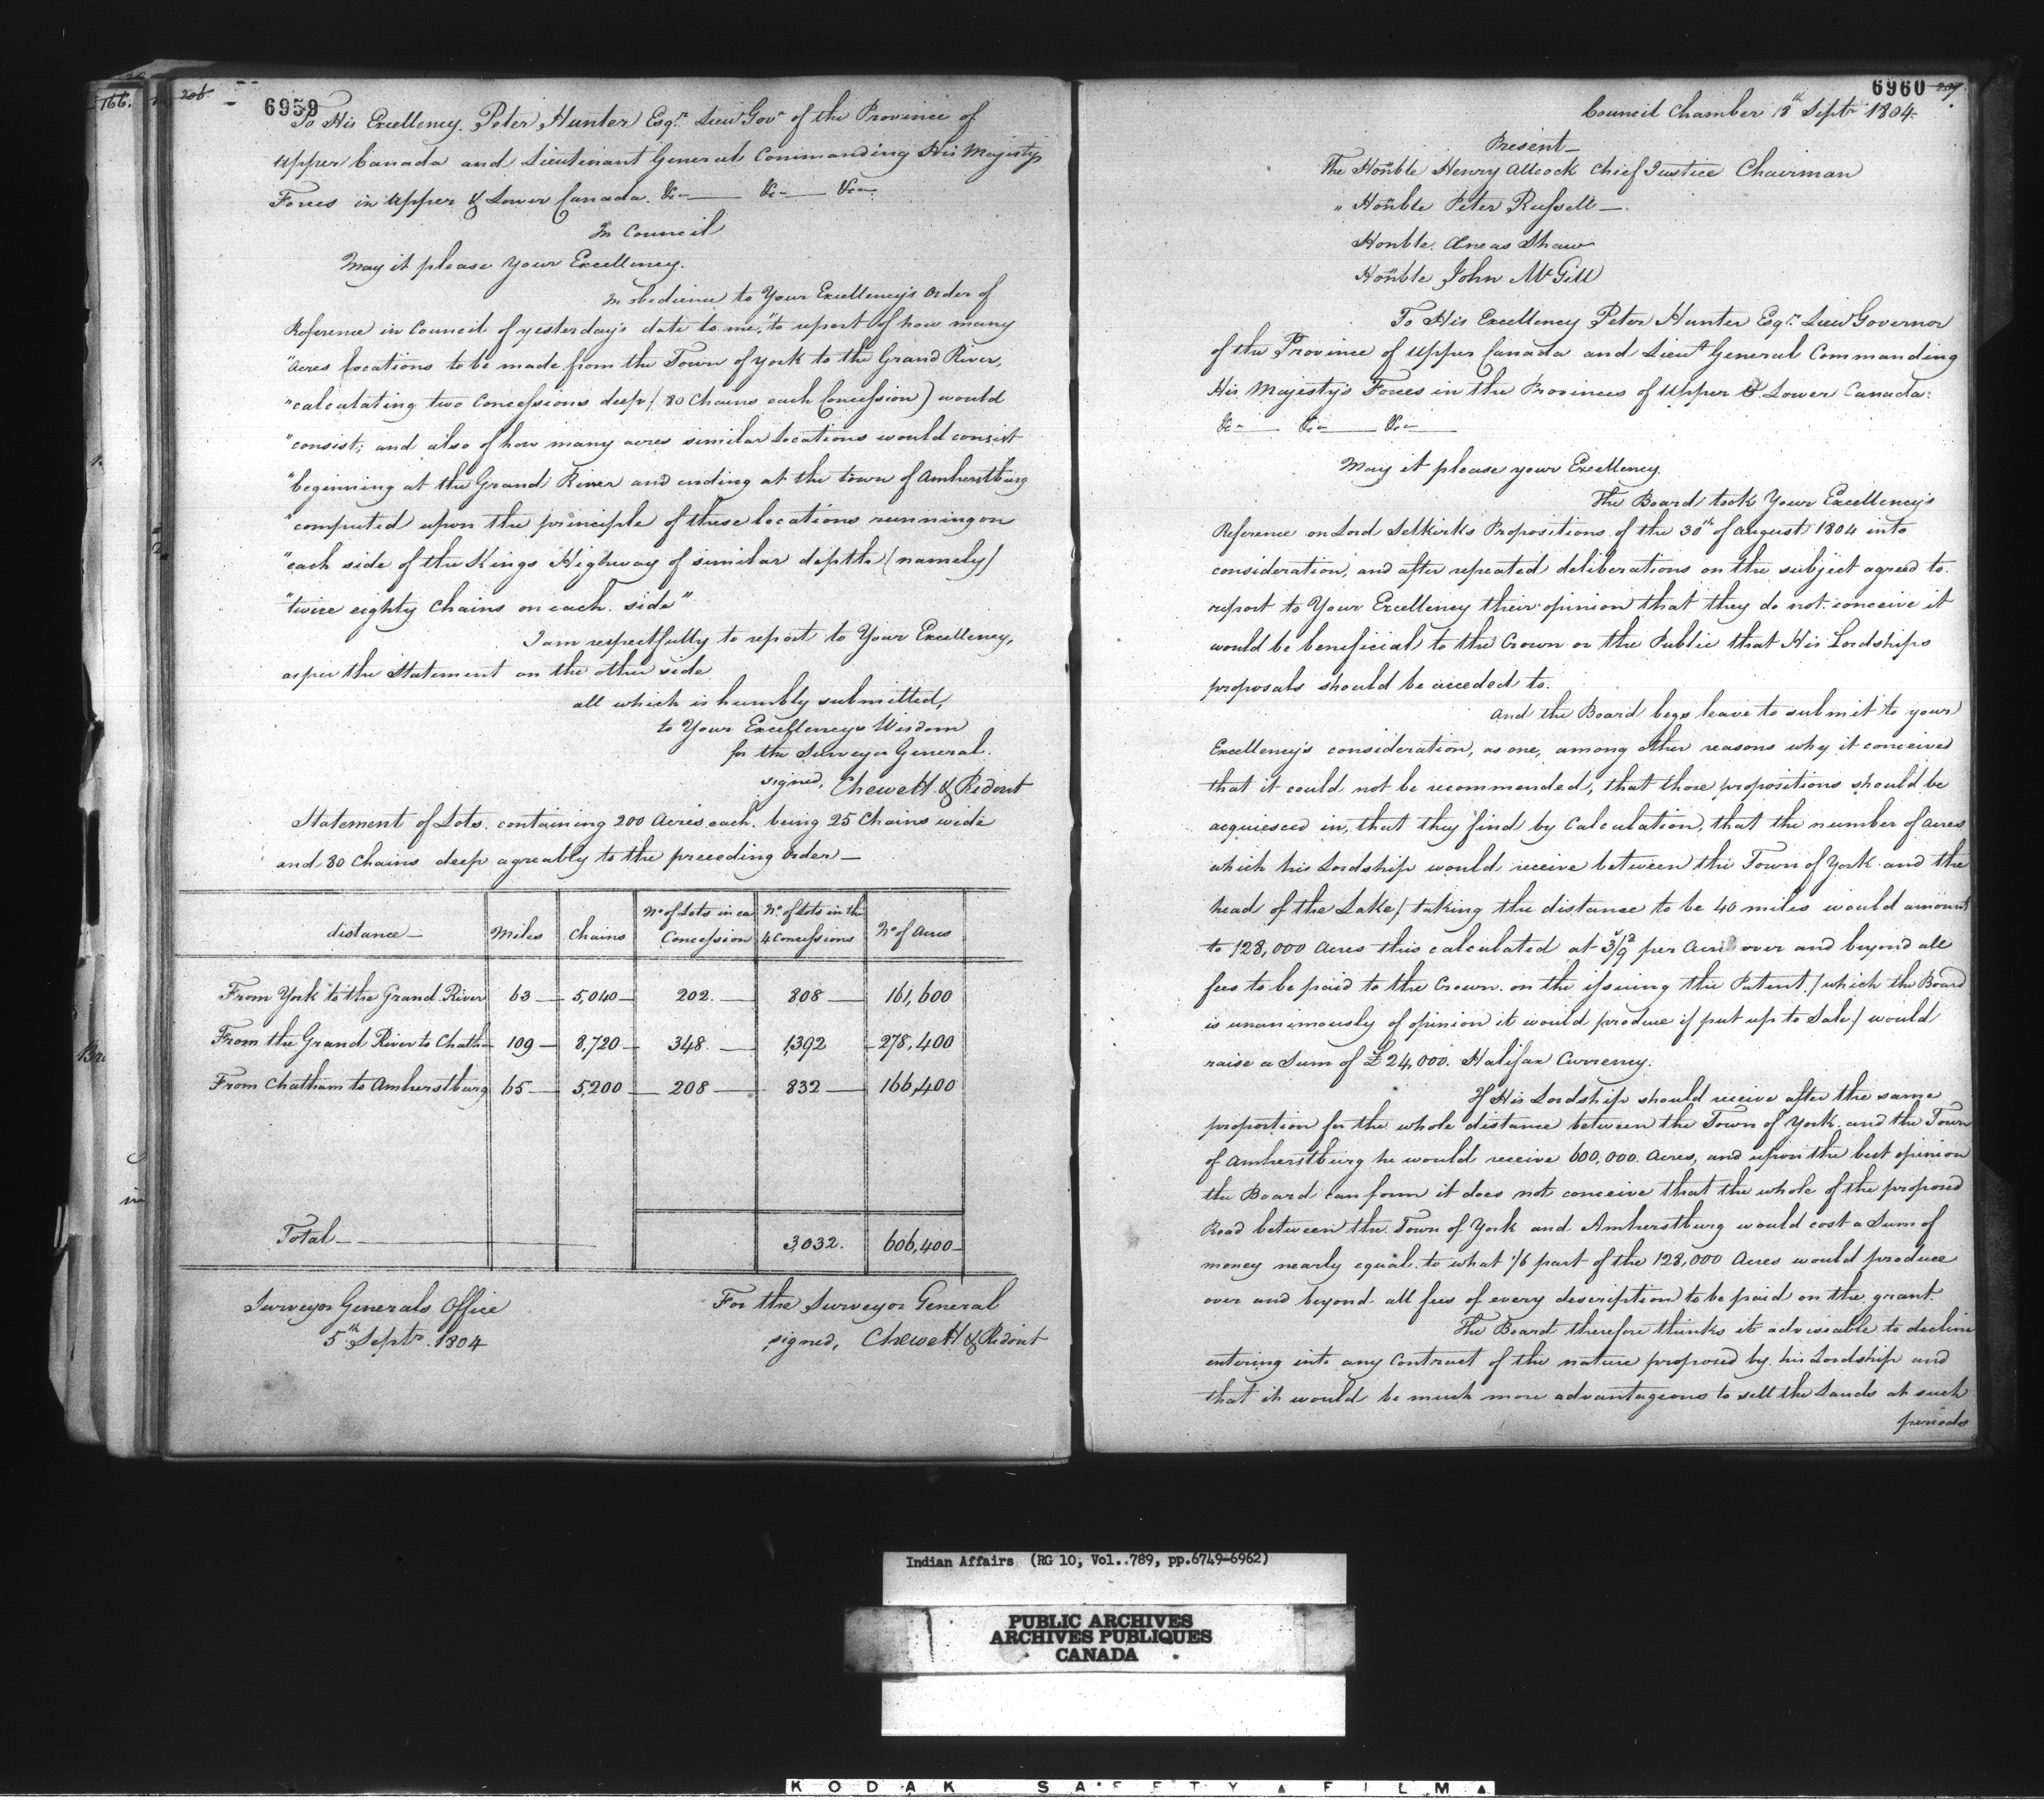 166.
206
6959
To His Excellency Peter Hunter Esqr. Lieut Govr of the Province of
Upper Canada and Lieutenant General Commanding His Majestys
Forces in Upper & Lower Canada. &c— &c— &c—
In Council
May it please Your Excellency.
In obedience to Your Excellency's Order of
Reference in Council of yesterday's date to me, "to report of how many
"Acres locations to be made from the Town of York to the Grand River,
"calculating two Concessions deep (80 Chains each Concession) would
"consist; and also of how many acres similar Locations would consist
"beginning at the Grand River and ending at the town of Amherstburg
"computed upon the principle of these locations running on
"each side of the Kings Highway of similar depth (namely)
"twice eighty Chains on each side"
I am respectfully to report to Your Excellency,
as per the Statement on the other side
all which is humbly submitted,
to Your Excellency's Wisdom
for the Surveyor General.
signed, Chewett & Ridout
Statement of Lots containing 200 Acres each being 25 Chains wide
and 80 Chains deep agreably to the preceding Order—
distance— Miles Chains No of Lots in ea Concession No. of Lots in the 4 Concessions No of Acres
From York to the Grand River 63 — 5,040 — 202. — 808 — 161,600
From the Grand River to Chath— 109 — 8,720 — 348. — 1,392 — 278,400
From Chatham to Amherstburg 65 — 5,200 — 208 — 832 — 166,400
Total — 3,032. 606,400—
Surveyor Generals Office
5th Septr. 1804
For the Surveyor General
signed, Chewett & Ridout
6960
207
Council Chamber 18th Septr 1804.
Present—
The Honble Henry Allcock Chief Justice Chairman
" Honble Peter Russell—
Honble. Æneas Shaw
Honble John McGill
To His Excellency Peter Hunter Esqr. Lieut Governor
of the Province of Upper Canada and Lieut General Commanding
His Majesty's Forces in the Provinces of Upper & Lower Canada.
&c— &c— &c—
May it please your Excellency.
The Board took Your Excellency's
Reference on Lord Selkirks Propositions of the 30th of August 1804 into
consideration, and after repeated deliberations on the subject agreed to
report to Your Excellency their opinion that they do not conceive it
would be beneficial to the Crown or the Public that His Lordships
proposals should be acceded to.
And the Board begs leave to submit to your
Excellency's consideration, as one, among other reasons why it conceives
that it could not be recommended, that those propositions should be
acquiesced in, that they find by Calculation, that the number of Acres
which his Lordship would receive between the Town of York and the
head of the Lake/ taking the distance to be 40 miles would amount
to 128,000 Acres this calculated at 3s/9d per Acre over and beyond all
fees to be paid to the Crown on the issuing the Patent/ which the Board
is unanimously of opinion it would produce if put up to Sale/ would
raise a Sum of £24,000. Halifax Currency.
If His Lordship should receive after the same
proportion for the whole distance between the Town of York and the Town
of Amherstburg he would receive 600,000. Acres, and upon the best opinion
the Board can form it does not conceive that the whole of the proposed
Road between the Town of York and Amherstburg would cost a Sum of
money nearly equal to what 1/6 part of the 128,000 Acres would produce
over and beyond all fees of every description to be paid on the grant.
The Board therefore thinks it adviseable to decline
entering into any Contract of the nature proposed by his Lordship and
that it would be much more advantageous to sell the Lands at such
periods
Indian Affairs (RG 10, Vol..789, pp.6749-6962)
PUBLIC ARCHIVES
ARCHIVES PUBLIQUES
CANADA
KODAK SAFETY FILM